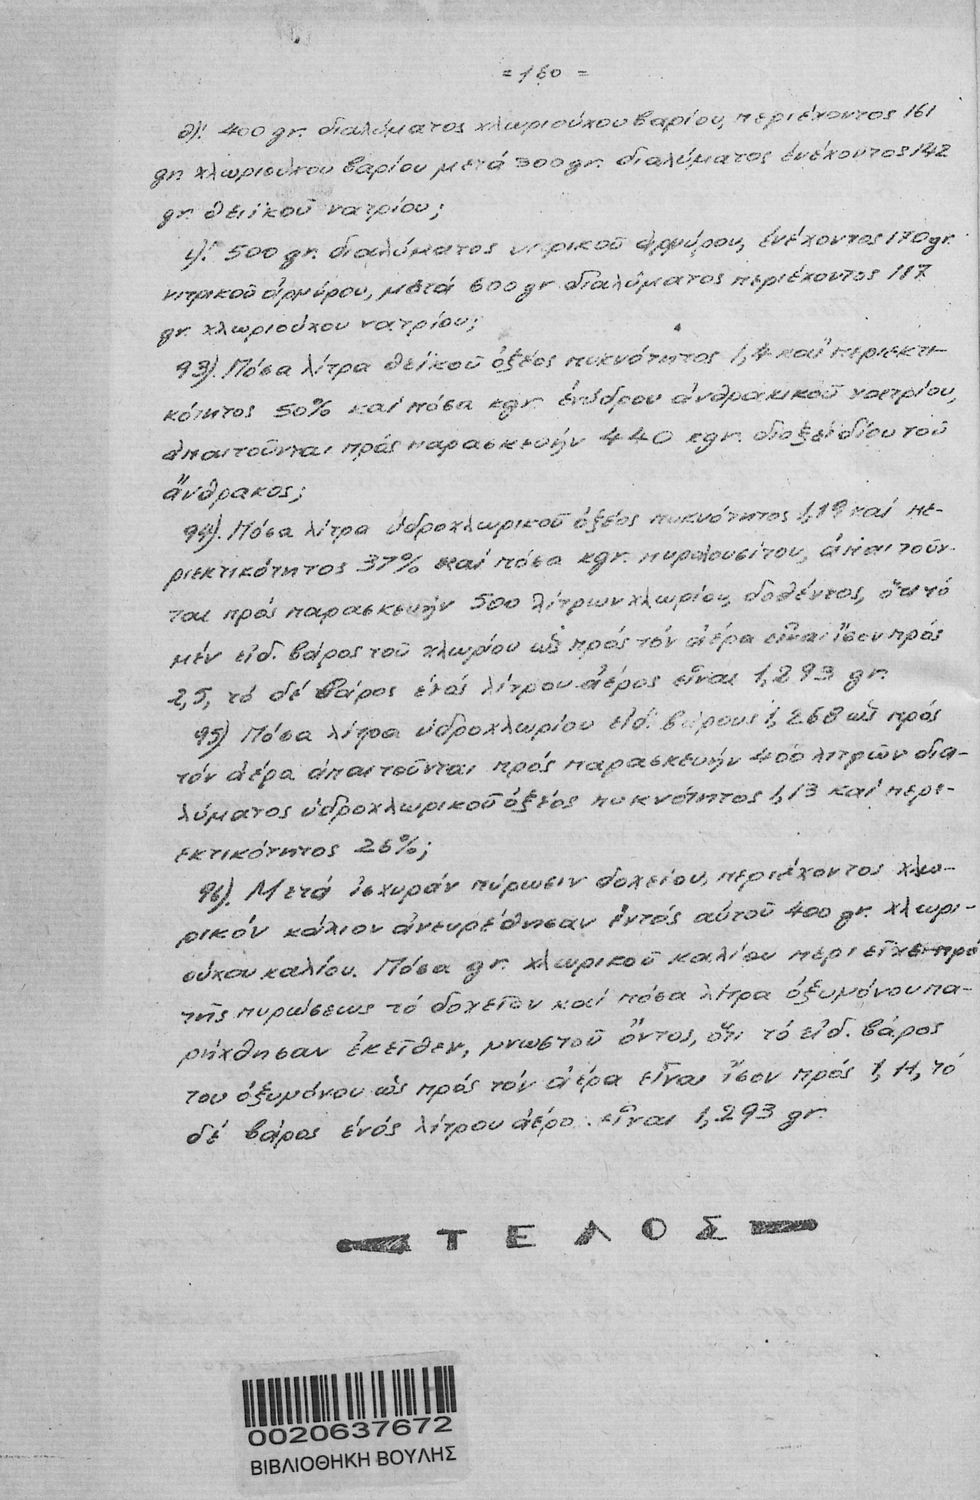 = 160 =
θ)! 400 gr. διαλύματος χλωριούχου βαρίου, περιέχοντος 161
gr. χλωριούχου βαρίου μετά 300 gr. διαλύματος ἐνέχοντος 142
gr. θειϊκοῦ νατρίου;
ι)! 500 gr. διαλύματος νιτρικοῦ ἀργύρου, ἐνέχοντος 170 gr.
νιτρικοῦ ἀργύρου, μετά 600 gr. διαλύματος περιέχοντος 117
gr. χλωριούχου νατρίου;
93). Πόσα λίτρα θειϊκοῦ ὀξέος πυκνότητος 1,4 καί περιεκτι-
κότητος 50% καί πόσα κgr. ἐνύδρου ἀνθρακικοῦ νατρίου,
ἀπαιτοῦνται πρός παρασκευήν 440 κgr. διοξειδίου τοῦ
ἄνθρακος;
94). Πόσα λίτρα ὑδροχλωρικοῦ ὀξέος πυκνότητος 1,19 καί πε-
ριεκτικότητος 37% καί πόσα κgr. πυρολουσίτου, ἀπαιτοῦν-
ται πρός παρασκευήν 500 λίτρων χλωρίου, δοθέντος, ὅτι τό
μέν εἰδ. βάρος τοῦ χλωρίου ὡς πρός τόν ἀέρα εἶναι ἴσον πρός
2,5, τό δέ βάρος ἑνός λίτρου ἀέρος εἶναι 1,293 gr.
95) Πόσα λίτρα ὑδροχλωρίου εἰδ. βάρους 1,268 ὡς πρός
τόν ἀέρα ἀπαιτοῦνται πρός παρασκευήν 400 λιτρῶν δια-
λύματος ὑδροχλωρικοῦ ὀξέος πυκνότητος 1,13 καί περι-
εκτικότητος 26%;
96). Μετά ἰσχυράν πύρωσιν δοχείου, περιέχοντος χλω-
ρικόν κάλιον ἀνευρέθησαν ἐντός αὐτοῦ 400 gr. χλωρι-
ούχου καλίου. Πόσα gr. χλωρικοῦ καλίου περιεῖχε πρό
τῆς πυρώσεως τό δοχεῖον καί πόσα λίτρα ὀξυγόνου πα-
ρήχθησαν ἐκεῖθεν, γνωστοῦ ὄντος, ὅτι τό εἰδ. βάρος
του ὀξυγόνου ὡς πρός τόν ἀέρα εἶναι ἴσον πρός 1,11, τό
δέ βάρος ἑνός λίτρου ἀέρο. εἶναι 1,293 gr.
ΤΕΛΟΣ
0020637672
ΒΙΒΛΙΟΘΗΚΗ ΒΟΥΛΗΣ